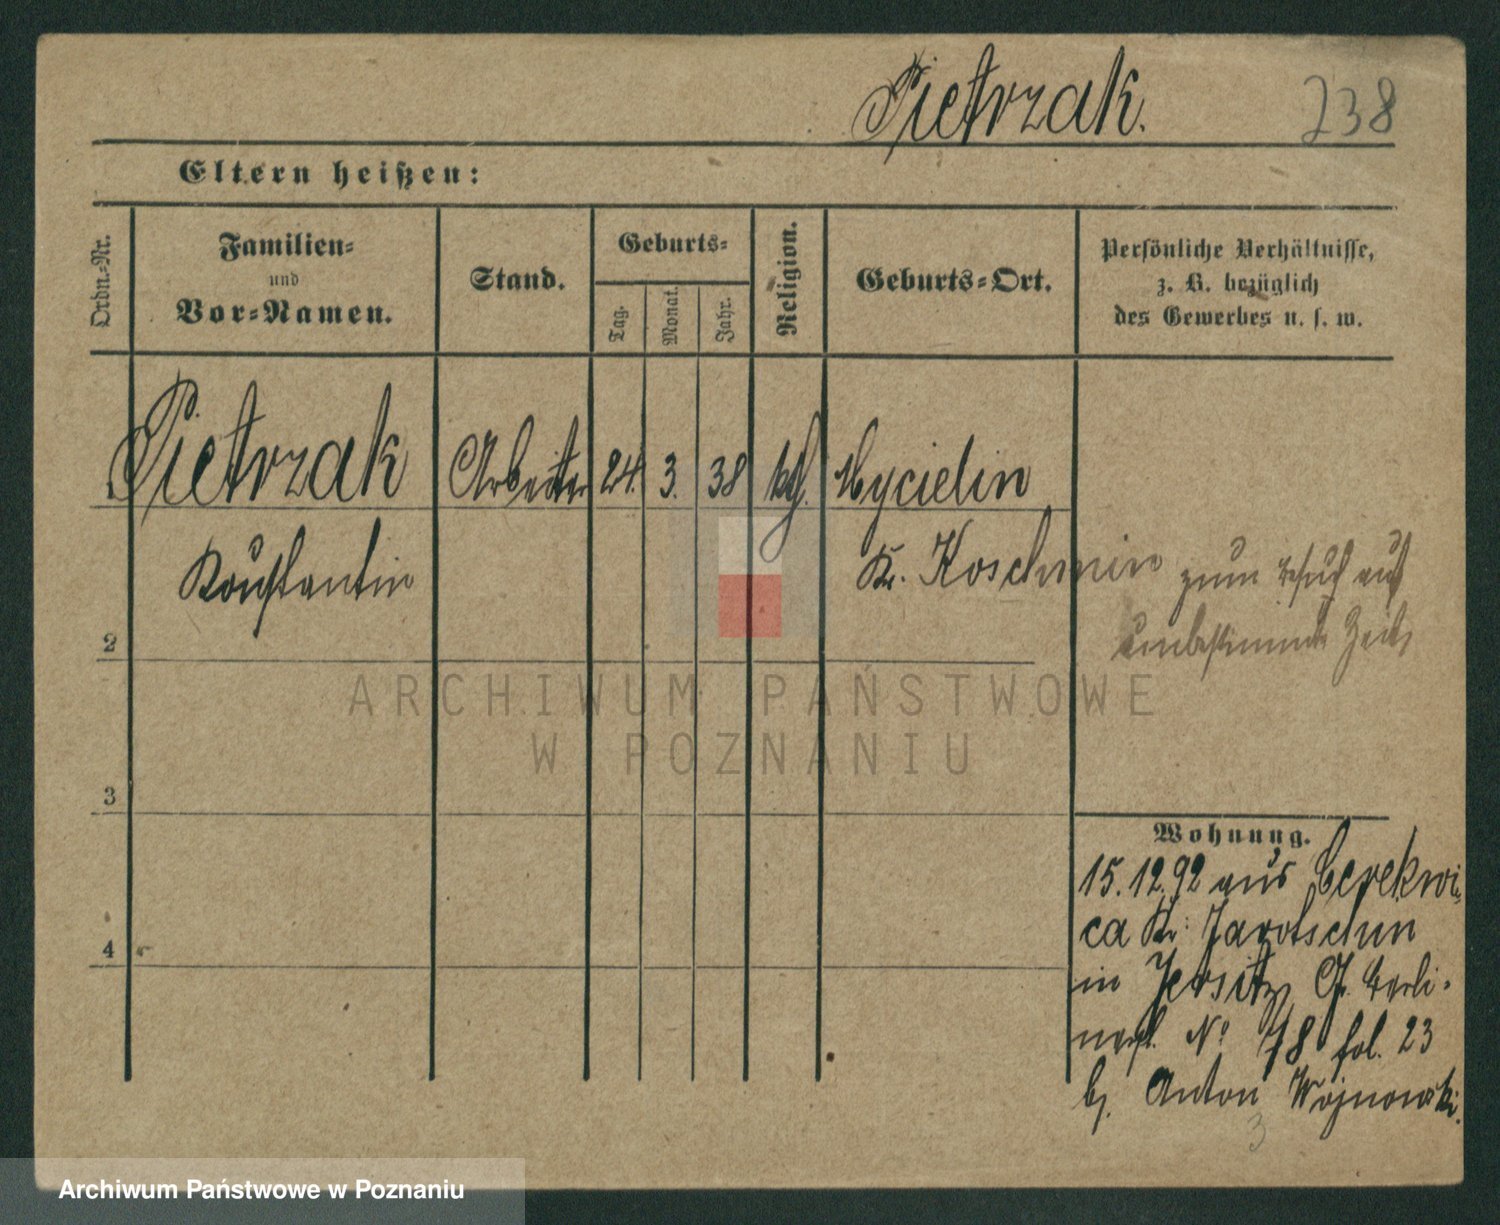 Pietrzak. 238
Eltern heißen:
Ordn.-Nr.
Familien-
und
Vor-Namen.
Stand.
Geburts-
Tag.
Monat.
Jahr.
Religion.
Geburts-Ort.
Persönliche Verhältnisse,
z. B. bezüglich
des Gewerbes u. s. w.
1 Pietrzak Arbeiter 24. 3. 38 kth. Mycielin
Konstantin Kr. Koschmin
zum Besuch auf
unbestimmte Zeit
2
3
4
ARCHIWUM PAŃSTWOWE
W POZNANIU
Wohnung.
15.12.92 aus Cerekwi-
ca Kr. Jarotschin
in Jersitz, Gr. Berli-
nerst. No 78 fol. 23
b. Anton Wojnowski.
3
Archiwum Państwowe w Poznaniu